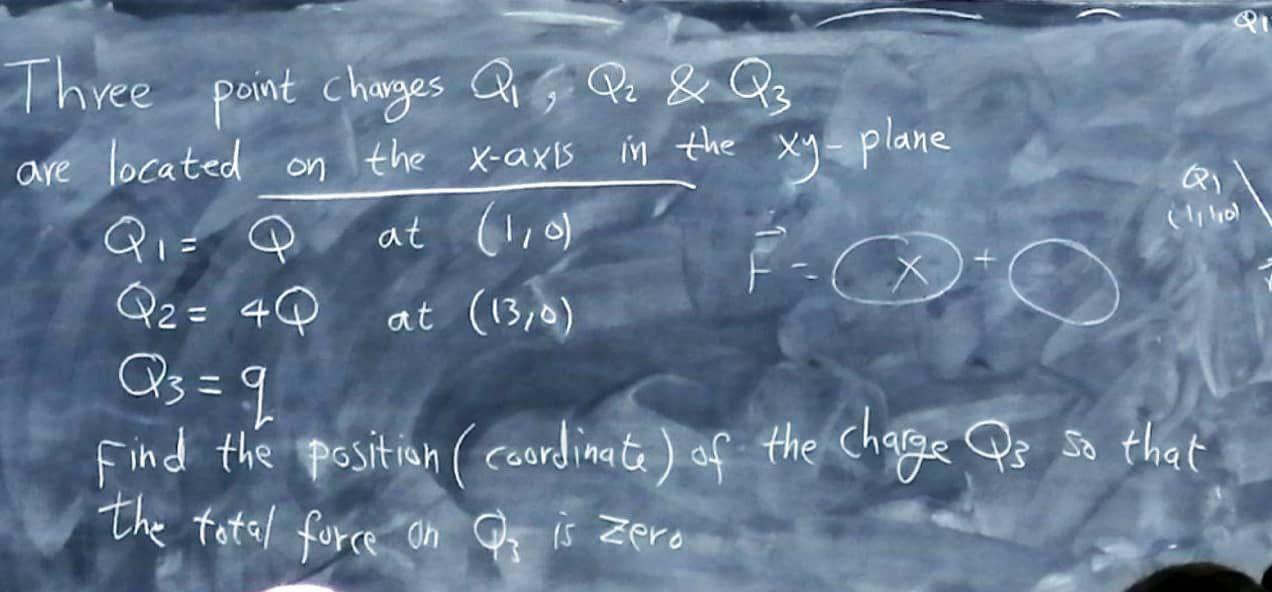 Q1
Three point charges Q1, Q2 & Q3
are located on the x-axis in the xy-plane
Q1
(1,1,0)
Q1 = Q at (1,0)
F = x +
Q2 = 4Q at (13,0)
Q3 = q
Find the position (coordinate) of the charge Q3 so that
the total force on Q3 is zero